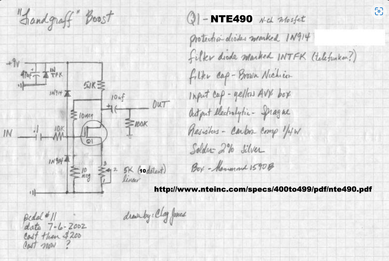 "Landgraff" Boost
Q1 - NTE490 N-ch Mosfet
protection diodes marked 1N914
filter diode marked INTFK (telefunken?)
filter cap - Brown Nichicon
Input cap - yellow AVX box
Output electrolytic - Sprague
Resistors - carbon comp 1/4w
Solder 2% silver
Box - Hammond 1590B
http://www.nteinc.com/specs/400to499/pdf/nte490.pdf
+9v
IN
OUT
10uf
100K
10K
1N914
Q1
5K
linear
pedal #11
date 7-6-2002
cost then $200
cost now ?
drawn by: Clay Jones